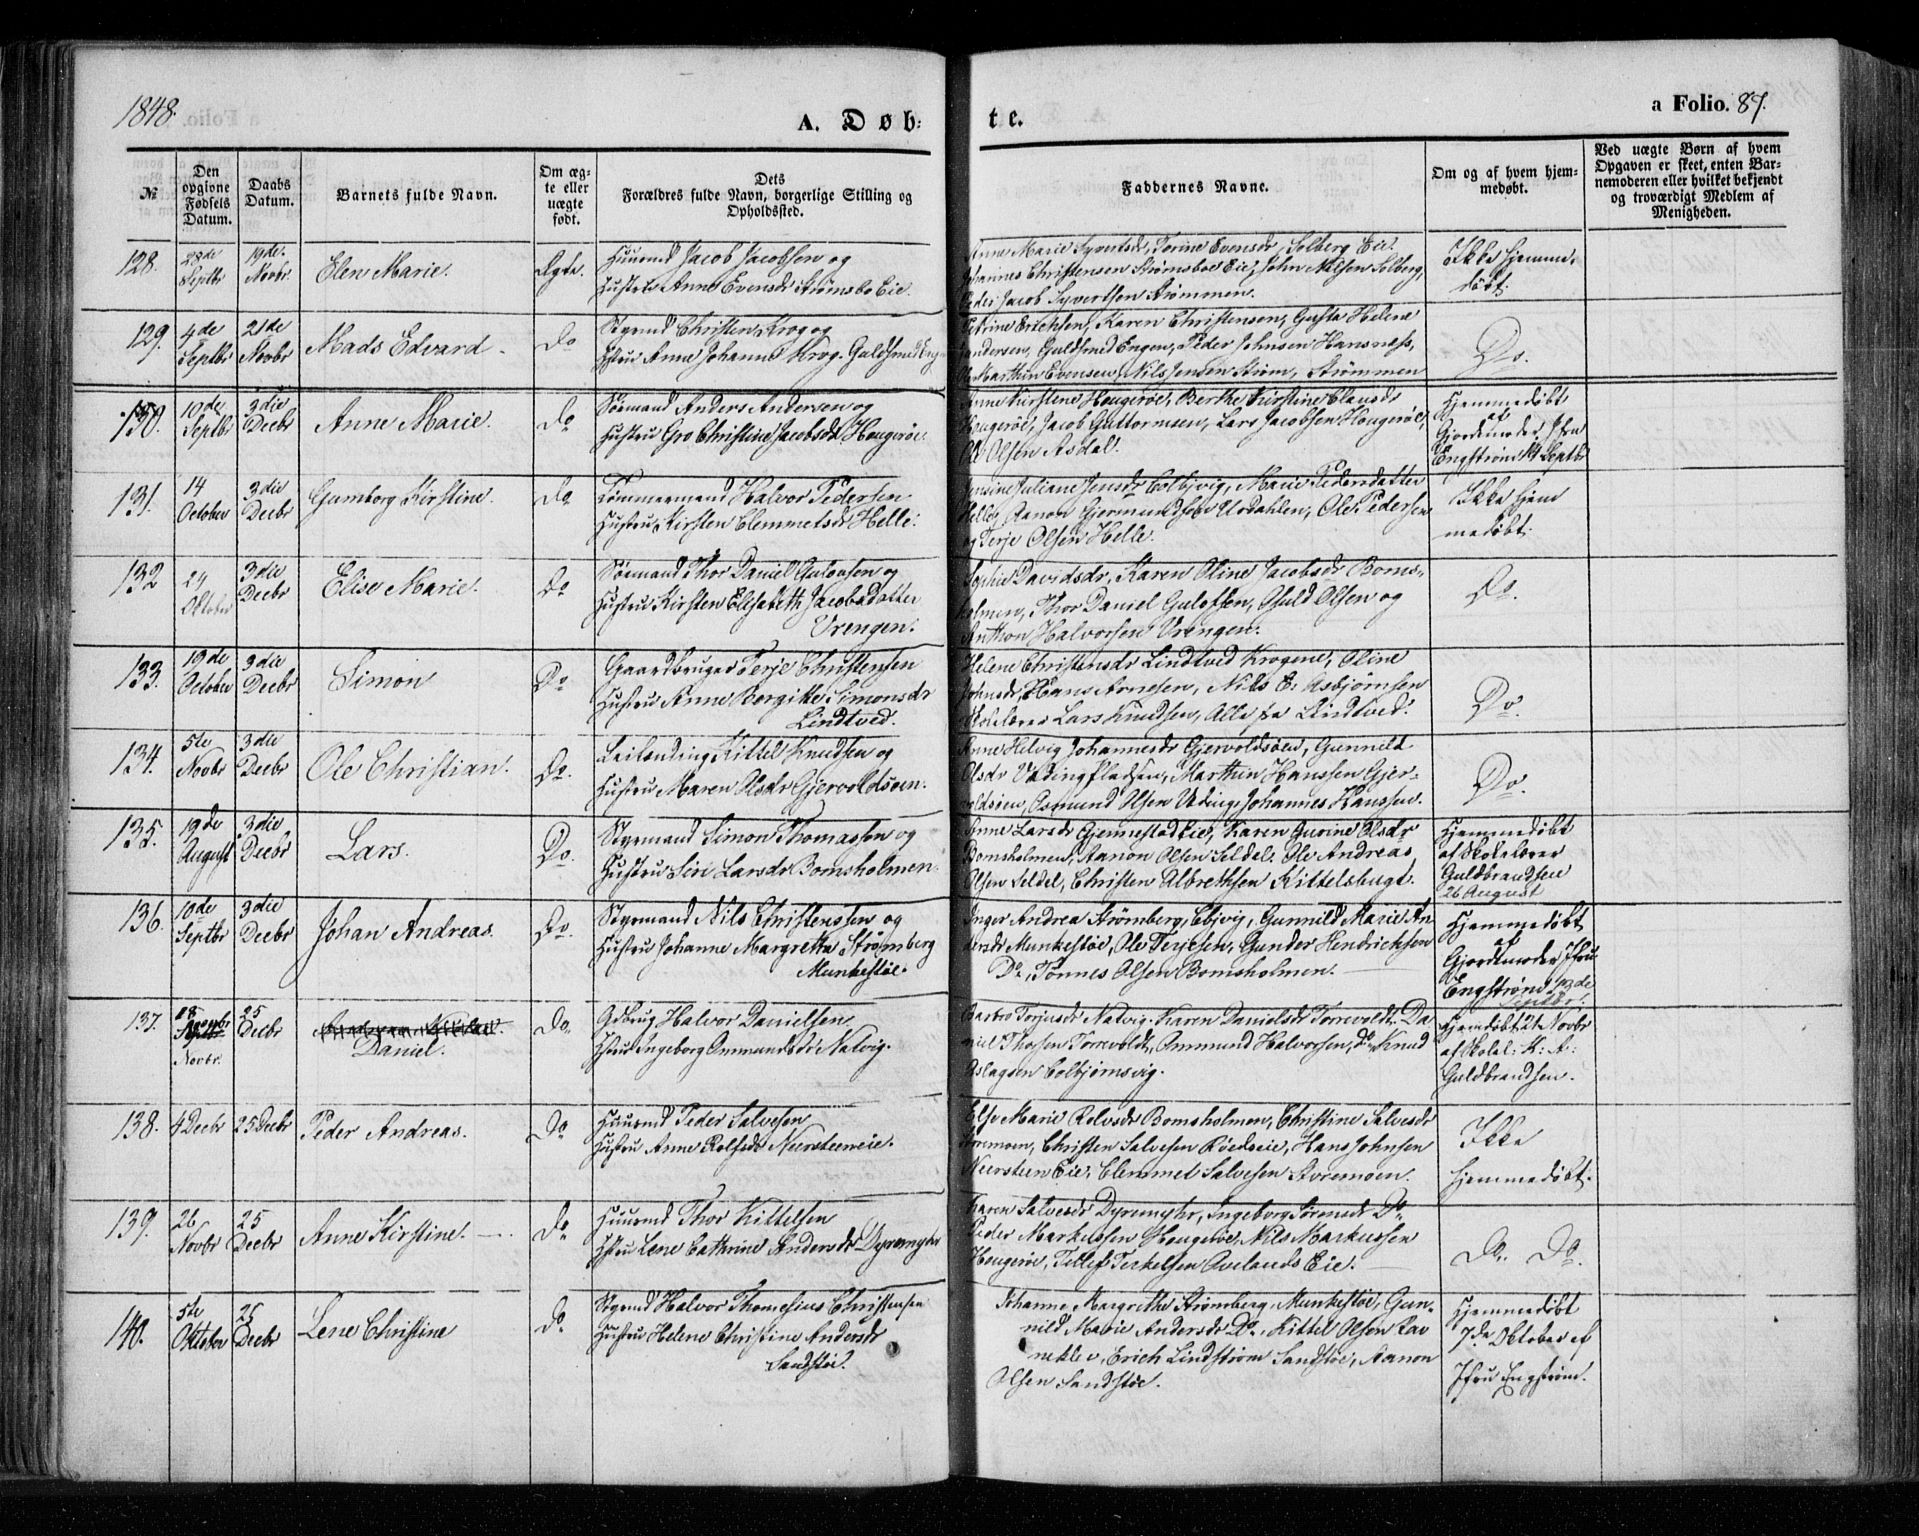 1848.
A. Døb-
te.
a Folio. 87.
№
Den opgivne Fødsels Datum.
Daabs Datum.
Barnets fulde Navn.
Om ægte eller uægte født.
Dets Forældres fulde Navn, borgerlige Stilling og Opholdssted.
Faddernes Navne.
Om og af hvem hjemmedøbt.
Ved uægte Børn af hvem Opgaven er skeet, enten Barnemoderen eller hvilket bekjendt og troværdigt Medlem af Menigheden.
128. 28de Septbr 19de Novbr. Elen Marie. Ægte.
Huusmd Jacob Jacobsen og
Hustru Anne Evensdr Strømsbo Eie.
Anne Marie Syvertsdr, Torine Evensdr, Solberg Eie.
Johannes Christensen Strømsboe Eie, John Nilsen Solberg,
Peder Jacob Syvertsen Strømmen.
Ikke hjemme-
døbt.
129. 4de Septbr 21de Novbr Mads Edvard. Do
Styrmd Christen Krog og
Hstru Anne Johanne Krog. Guldsmed Engen
Petrine Erichsen, Karen Christensen, Gusta Helene
Andersen, Guldsmed Engen, Peder Johnsen Hansness,
Ole Marthin Evensen, Nils Jensen Strøm, Strømmen
Do.
130. 10de Septbr 3die Decbr Anne Marie. Do
Sømand Anders Andersen og
Hustru Gro Christine Jacobsdr Hougerøe.
Anne Kirstene Hougerøe, Berthe Kirstine Clausdr
Hougerøe, Jacob Guttormsen, Lars Jacobsen Hougerøe,
Ole Olsen Asdal.
Hjemmedøbt
af
Gjordemoder Jfru
Engstrøm 14 Septbr
131. 14 October 3die Decbr Gumborg Kirstine. Do
Tømmermand Halvor Pedersen
Hustru Kirsten Clemmetsdr Helle.
Jensine Juliane Jensdr Colbjvig, Marie Pedersdatter
Helle, Aanon Gjermundsen Urdahlen, Ole Pedersen
og Terje Olsen Helle.
Ikke hjem
medøbt.
132 24 Oktober 3die Decbr Elise Marie. Do
Sømand Thor Daniel Gulovsen og
Hustru Kirsten Elisabeth Jacobsdatter
Vrengen.
Sophie Davidsdr, Karen Oline Jacobsdr Boms-
holmen, Thor Daniel Guloffsen, Osuld Olsen og
Anthon Halvorsen Vrengen.
Do.
133. 19de October 3die Decbr Simon Do
Gaardbruger Terje Christensen
Hustru Anne Borgitte Simonsdr
Lindtved.
Helene Christensdr Lindtved Krogene, Oline
Johnsdr, Hans Arnesen, Nils E. Asbjørnsen
Skolelærer Lars Knudsen, Alle fra Lindtved.
Do.
134. 5te Novbr 3die Decbr Ole Christian. Do.
Leilænding Kittel Knudsen og
Hustru Maren Olsdr Gjervoldsøen.
Anne Helvig Johannesdr Gjervoldsøen, Gunnild
Olsdr Uding Pladsen, Marthin Hanssen Gjer-
voldsøen, Osmund Olsen Uding, Johannes Hanssen.
Do.
135. 19de August 3die Decbr Lars. Do.
Styrmand Simon Thomassen og
Hustru Siri Larsdr Bomsholmen.
Anne Larsdr Gjennestad Eie, Karen Gurine Olsdr
Bomsholmen, Aanon Olsen Seldel, Ole Andreas
Olsen Seldel, Christen Albrethsen Kittelsbugt.
Hjemmedøbt
af Skolelærer
Guldbrandsen
26 August
136. 10de Septbr 3die Decbr Johan Andreas. Do.
Styrmand Nils Christensen og
Hustru Johanne Margrethe Strømberg
Munkestøe.
Inger Andrea Strømberg, Ebjvig, Gunnild Marie An-
dersdr Munkestøe, Ole Terjesen, Gunder Hendrichsen
Do, Tønnes Olsen Bomsholmen.
Hjemmedøbt
af
Gjordemoder Jfru
Engstrøm 13de
Septbr.
137. 18 Novbr. 25 Decbr Daniel. Do.
Gdbrug Halvor Danielsen
Hstru Ingeborg Ommundsdr Natvig.
Barbro Torjusdr Natvig. Karen Danielsdr Torrevoldt. Da-
niel Thorsen Torrevoldt, Ommund Halvorsen, Do, Knud
Aslagsen Colbjørnsvig.
Hjemdøbt 21 Novbr
af Skolel: K: A:
Guldbrandsen.
138. 4 Decbr 25 Decbr Peder Andreas. Do
Huusmd Peder Salvesen
Hustru Anne Rolfsdr Neersteeneie.
Else Marie Rolvsdr Bomsholmen, Christine Salvesdr
Stremoen, Christen Salvesen Røedseie, Hans Johnsen
Neersteen Eie, Clemmet Salvesen Stremoen.
Ikke
hjemmedøbt.
139. 26 Novbr 25 Decbr Anne Kirstine. Do
Huusmd Thor Kittelsen
Hstru Lene Cathrine Andersdr Dyremyhr
Karen Salvesdr Dyremyhr, Ingeborg Sørensdr Do.
Peder Markussen Hougerøe, Nils Markussen
Hougerøe, Tellef Terkelsen Ovelands Eie.
Do. Do.
140. 5te Oktober 25 Decbr Lene Christine Do
Styrmd Halvor Thomesius Christensen
Hustru Helene Christine Andersdr
Sandstøe.
Johanne Margrethe Strømberg, Munkestøe, Gun-
nild Marie Andersdr Do, Kittel Olsen Rav-
nekle v, Erich Lindstrøm Sandstøe, Aanon
Olsen Sandstøe.
Hjemmedøbt
7de Oktober af
Jfru Engstrøm.